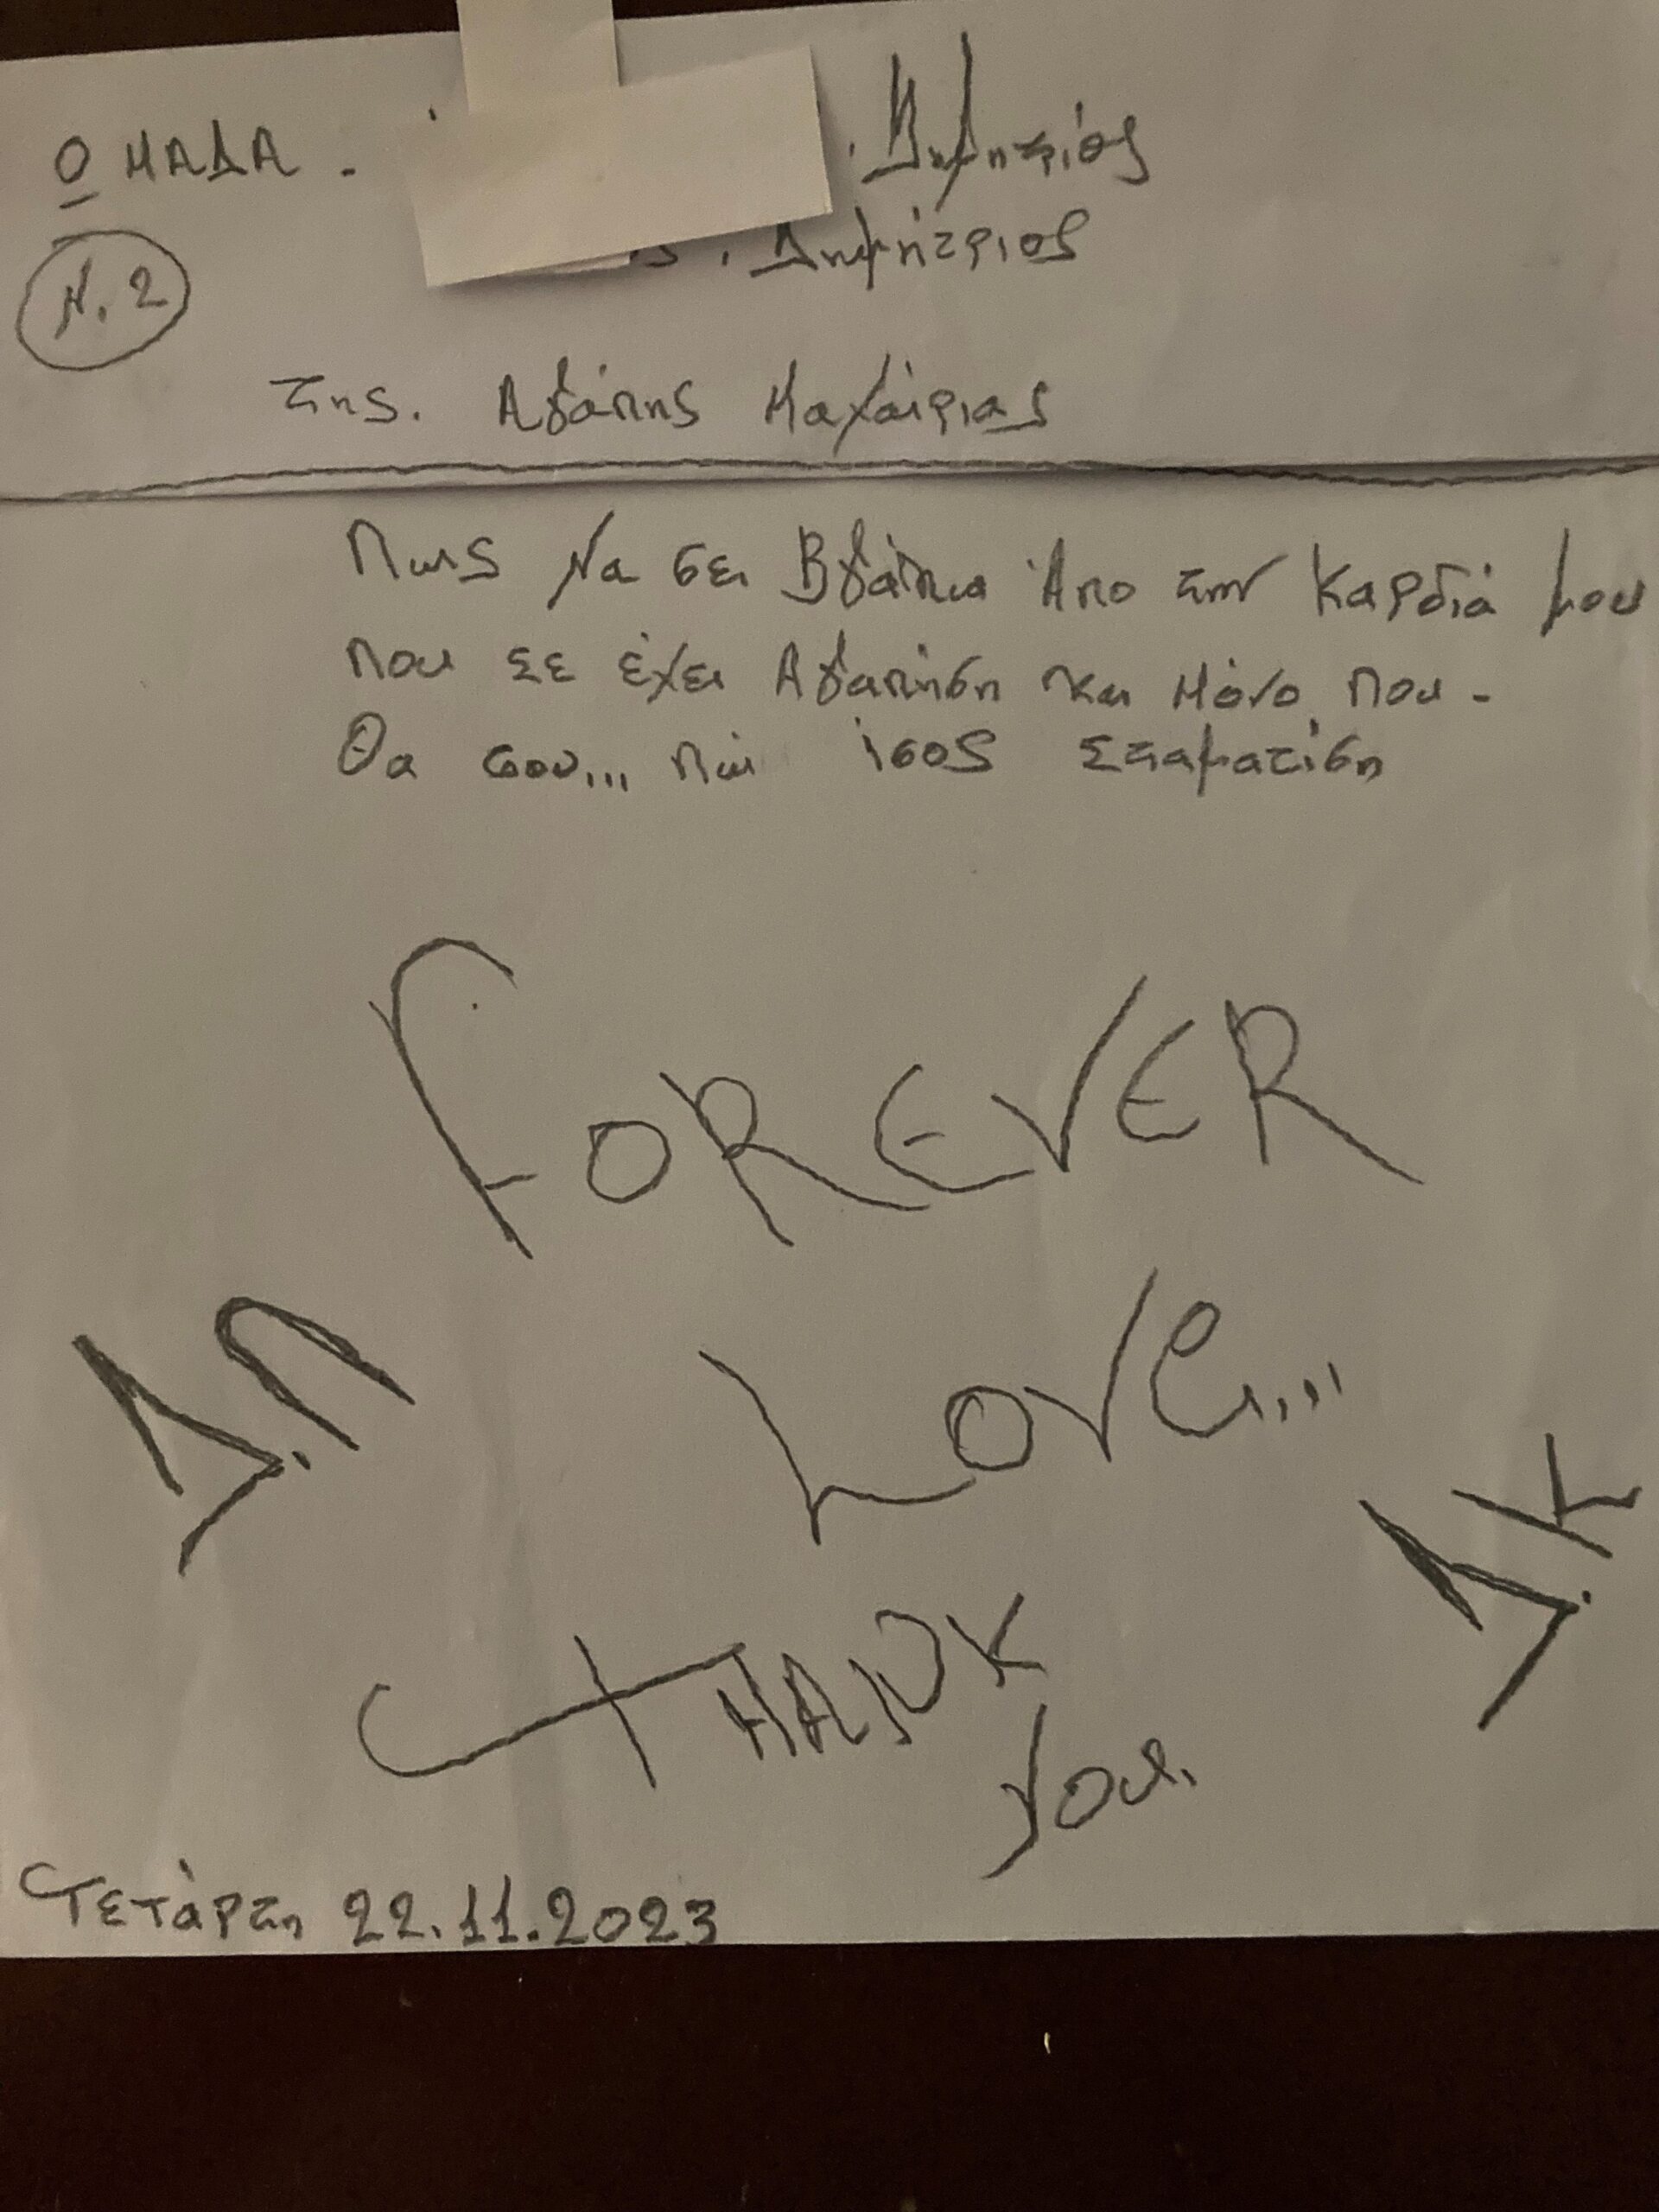 ΟΜΑΔΑ. . Δημητριός
ς. Δημήτριος
Ν. 2
της. Αγάπης Μαχαίριας
Πως Να σει Βγάπω Άπο την Καρδιά μου
που ΣΕ έχει Αγαπήση Και Μόνο που -
Θα σου... πώ ίσος Σταματίση
FOREVER
LOVE...
Δ.Π
Δ.Κ
THANK
you.
ΤΕΤάρτη 22.11.2023